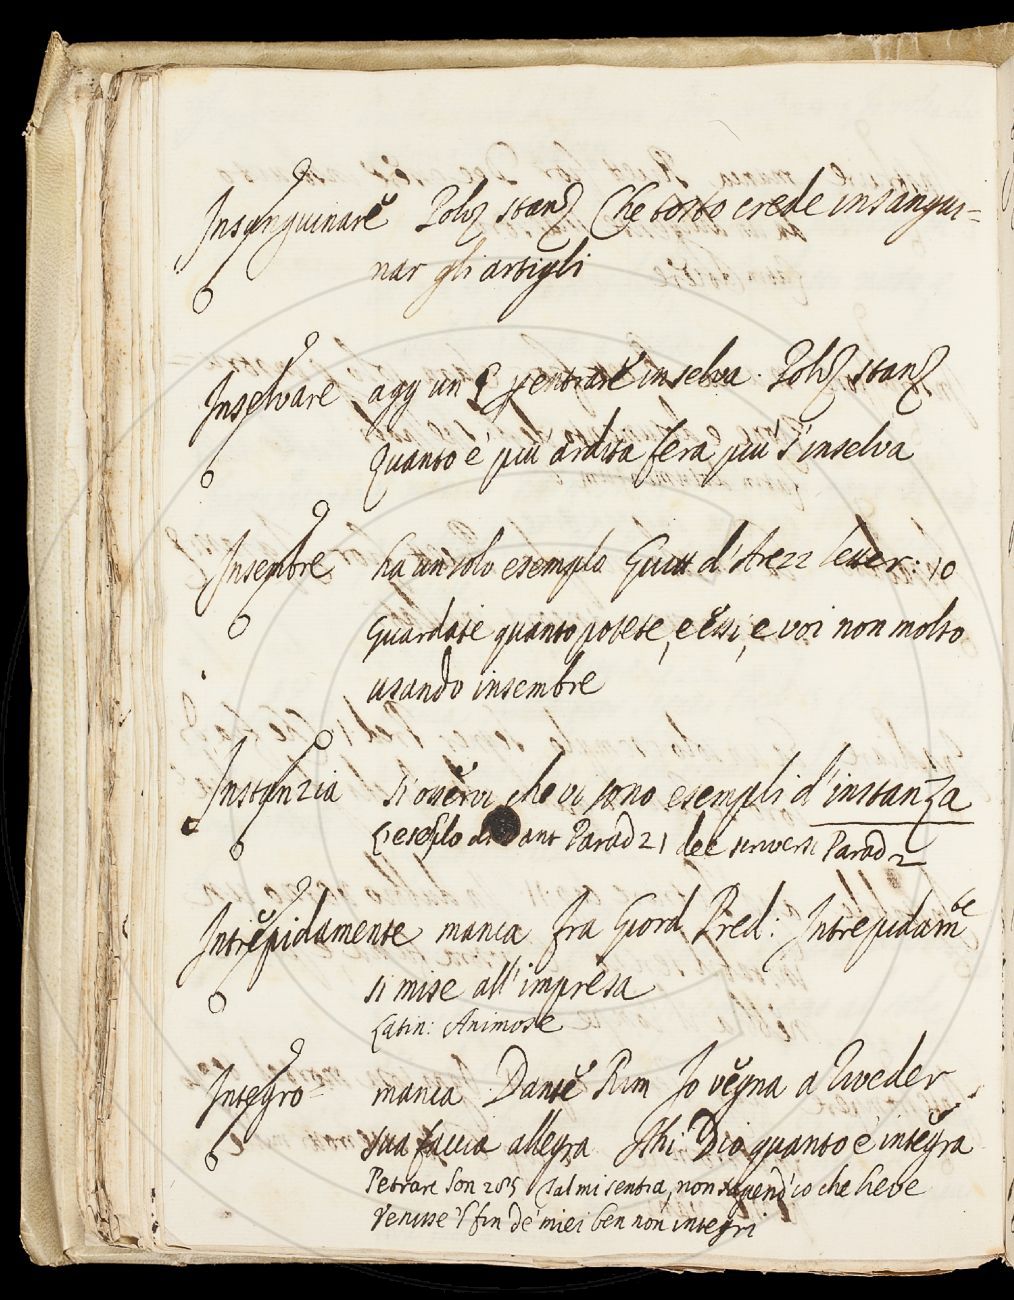 Insanguinare Poliz stanz Che tosto crede insangui=
nar gli artigli
Inselvare agg un § p entrare in selva. Poliz stanz
Quanto è più ardita fera più s'inselva
Insembre ha un solo esemplo Guitt d'Arezz letter: 10
Guardate quanto potete, e essi, e voi non molto
usando insembre
Instanzia si osservi che vi sono esempli d'instanza
L'esemplo di Dant Parad 21 dee scriversi Parad 2
Intrepidamente manca Fra Giord Pred: Intrepidam.te
si mise all'impresa
Latin: Animose
Integro= manca Dante Rim Io vegna a riveder
sua faccia allegra Ahi Dio quanto è integra
Petrarc Son 285 Tal mi sentia, non sapend'io che leve
Venisse 'l fin de' miei ben non integri